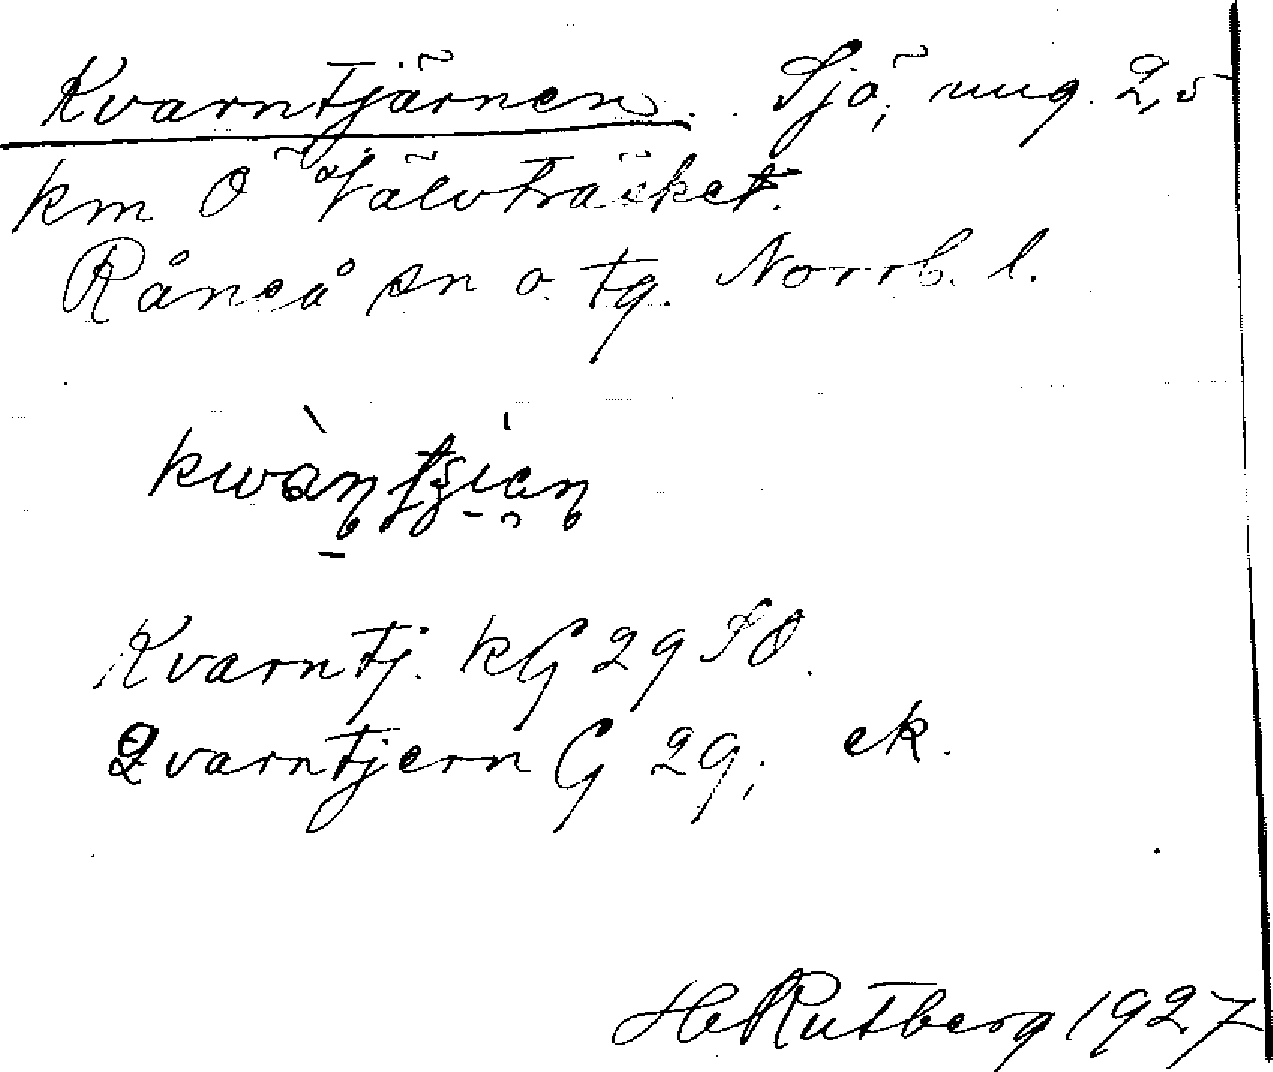 Kvarntjärnen. Sjö, ung. 2,5
km Ö Välvträsket.
Råneå sn o. tg. Norrb. l.
Kvarntj. kG 29 SO.
Qvarntjern G 29; ek.
H Rutberg 1927